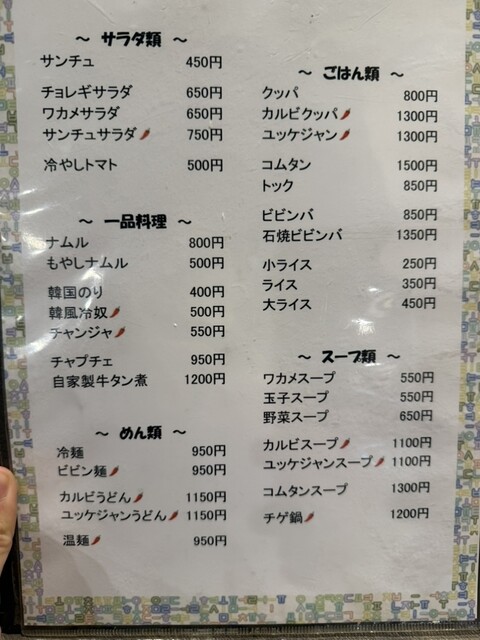 ～ サラダ類 ～
サンチュ 450円
チョレギサラダ 650円
ワカメサラダ 650円
サンチュサラダ🌶 750円
冷やしトマト 500円
～ 一品料理 ～
ナムル 800円
もやしナムル 500円
韓国のり 400円
韓風冷奴🌶 500円
チャンジャ🌶 550円
チャプチェ 950円
自家製牛タン煮 1200円
～ めん類 ～
冷麺 950円
ビビン麺🌶 950円
カルビうどん🌶 1150円
ユッケジャンうどん🌶 1150円
温麺🌶 950円
～ ごはん類 ～
クッパ 800円
カルビクッパ🌶 1300円
ユッケジャン🌶 1300円
コムタン 1500円
トック 850円
ビビンバ 850円
石焼ビビンバ 1350円
小ライス 250円
ライス 350円
大ライス 450円
～ スープ類 ～
ワカメスープ 550円
玉子スープ 550円
野菜スープ 650円
カルビスープ🌶 1100円
ユッケジャンスープ🌶 1100円
コムタンスープ 1300円
チゲ鍋🌶 1200円